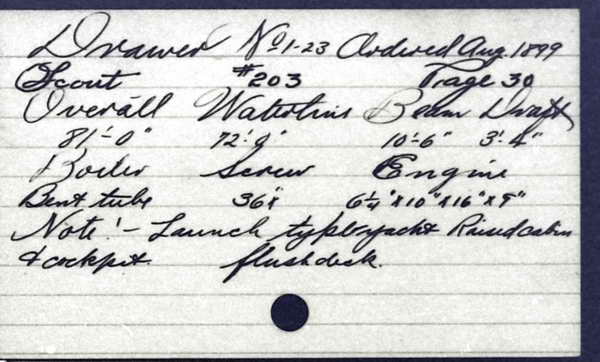 Drawer No 1-23 Ordered Aug. 1899
Scout #203 Page 30
Overall Waterline Beam Draft
81'-0" 72'-9" 10'-6" 3'-4"
Boiler Screw Engine
Bent tube 36" 6¼"x10"x16"x9"
Note! - Launch type yacht Raised cabin
& cockpit. flush deck.